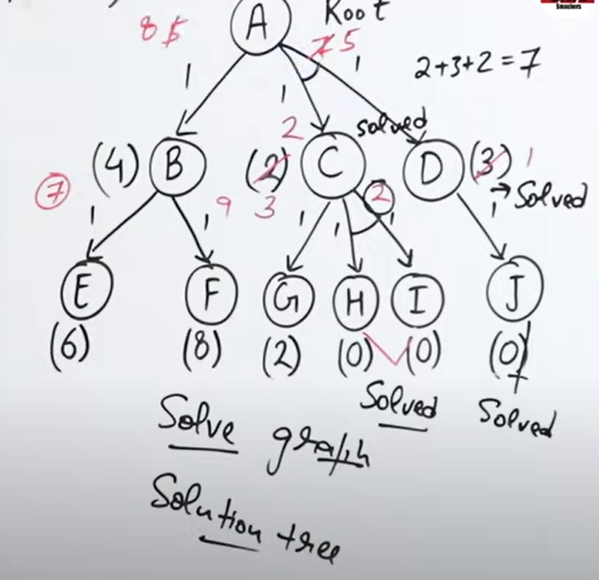 Smashers
Root
A
8 5
7 5
2+3+2=7
1 1 1
2 solved
(4) B (2) C D (3) 1
7 3 → Solved
1 1 9 1 1 2 1 1
E F G H I J
(6) (8) (2) (0) (0) (0)
Solved Solved
Solve graph
Solution tree